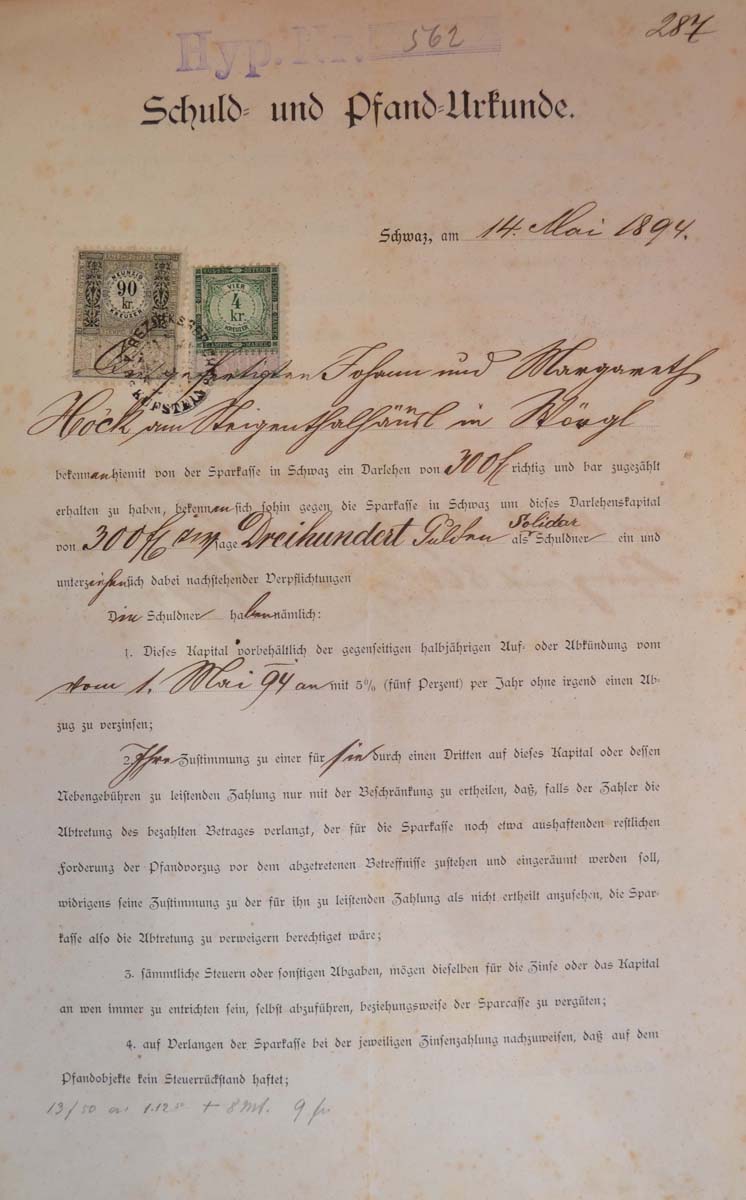 287
Hyp. Nr. 562
Schuld- und Pfand-Urkunde.
Schwaz, am 14. Mai 1894.
NEUNZIG
90
kr.
KREUZER
VIER
4
kr.
KREUZER
KUFSTEIN
Die gefertigten Johann und Margareth
Höck am Steigenthalhäusl in Wörgl
bekennen hiemit von der Sparkasse in Schwaz ein Darlehen von 300 fl richtig und bar zugezählt
erhalten zu haben, bekennen sich sohin gegen die Sparkasse in Schwaz um dieses Darlehenskapital
von 300 fl sage Dreihundert Gulden als Solidar Schuldner ein und
unterziehen sich dabei nachstehender Verpflichtungen
Die Schuldner haben nämlich:
1. Dieses Kapital vorbehältlich der gegenseitigen halbjährigen Auf- oder Abkündung vom
vom 1. Mai 94 an mit 5% (fünf Perzent) per Jahr ohne irgend einen Ab-
zug zu verzinsen;
2. Ihre Zustimmung zu einer für sie durch einen Dritten auf dieses Kapital oder dessen
Nebengebühren zu leistenden Zahlung nur mit der Beschränkung zu ertheilen, daß, falls der Zahler die
Abtretung des bezahlten Betrages verlangt, der für die Sparkasse noch etwa aushaftenden restlichen
Forderung der Pfandvorzug vor dem abgetretenen Betreffnisse zustehen und eingeräumt werden soll,
widrigens seine Zustimmung zu der für ihn zu leistenden Zahlung als nicht ertheilt anzusehen, die Spar-
kasse also die Abtretung zu verweigern berechtiget wäre;
3. sämmtliche Steuern oder sonstigen Abgaben, mögen dieselben für die Zinse oder das Kapital
an wen immer zu entrichten sein, selbst abzuführen, beziehungsweise der Sparcasse zu vergüten;
4. auf Verlangen der Sparkasse bei der jeweiligen Zinsenzahlung nachzuweisen, daß auf dem
Pfandobjekte kein Steuerrückstand haftet;
13/50